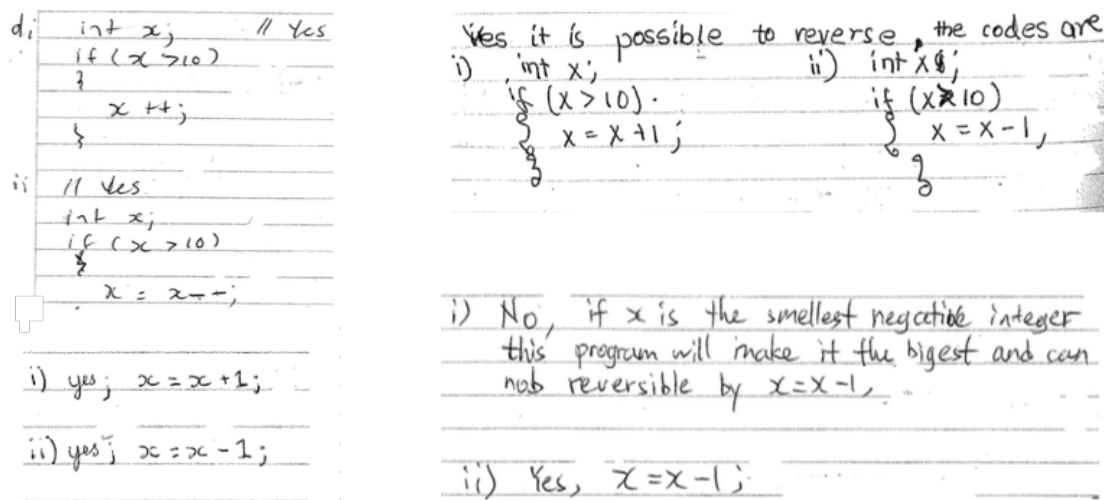 d. int x; // Yes
if (x >10)
{
x ++;
}
ii // Yes
int x;
if (x >10)
{
x = x--;
i) yes; x=x+1;
ii) yes; x=x-1;
Yes it is possible to reverse, the codes are
i) int x;
if (x>10).
{ x = x+1;
}
ii) int x;
if (x>10)
{ x = x-1,
}
i) No, if x is the smellest negative integer
this program will make it the bigest and can
not reversible by x=x-1,
ii) Yes, x=x-1;